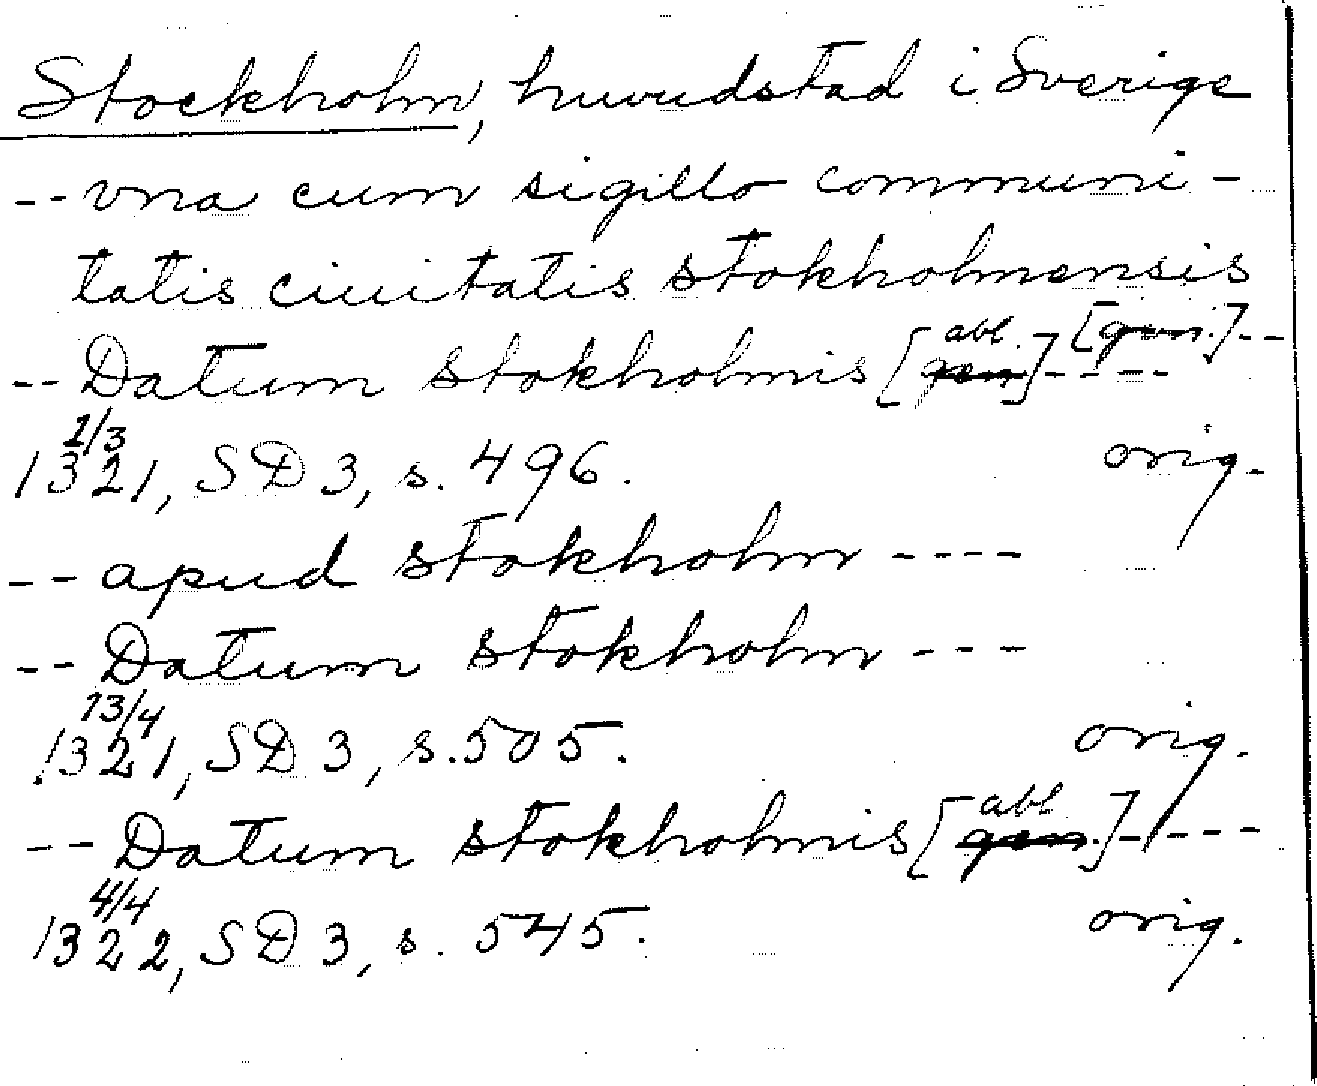 Stockholm, huvudstad i Sverige
-- vna cum sigillo communi-
tatis ciuitatis stokholmensis
-- Datum stokholmis [abl.] [gen.] -- ----
2/3
1321, SD 3, s. 496. orig.
-- apud stokholm ----
-- Datum stokholm ---
13/4
1321, SD 3, s. 505. orig.
-- Datum stokholmis [abl gen.] ----
4/4
1322, SD 3, s. 545. orig.